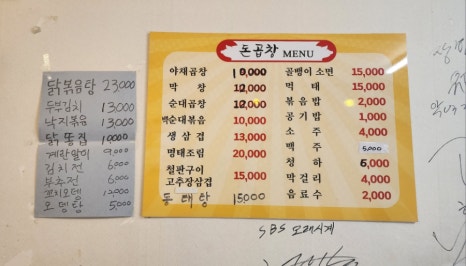 닭볶음탕 23000
두부김치 13000
낙지볶음 13000
닭똥집 10000
계란말이 9,000
김치전 6000
부추전 6000
꼬치오뎅 12000
오뎅탕 5,000
돈곱창 MENU
야채곱창 10,000
막창 12,000
순대곱창 12,000
백순대볶음 10,000
생삼겹 13,000
명태조림 20,000
철판구이
고추장삼겹 15,000
동태탕 15,000
골뱅이 소면 15,000
먹태 15,000
볶음밥 2,000
공기밥 1,000
소주 4,000
맥주 5,000
청하 6,000
막걸리 4,000
음료수 2,000
SBS 모래시계